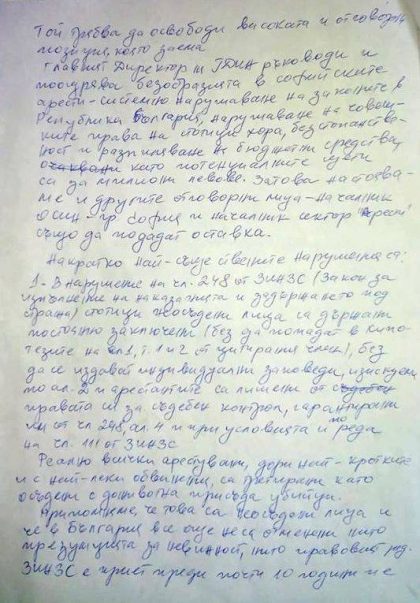 Той трябва да освободи високата и отговорна
позиция, която заема
Главният Директор на ГДИН ръководи и
поощрява безобразията в софийските
арести - системно нарушаване на законите в
Република България, нарушаване на човеш-
ките права на стотици хора, безстопанстве-
ност и разпиляване на бюджетни средства,
като потенциалните щети
са за милиони левове. Затова настоява-
ме и другите отговорни лица - началник
ОСИН - гр София и началник сектор "Арести"
също да подадат оставка.
Накратко най-съществените нарушения са:
1. В нарушение на чл. 248 от ЗИНЗС (Закон за
изпълнение на наказанията и задържането под
стража) стотици неосъдени лица са държани
постоянно заключени (без да попадат в хипо-
тезите на ал.1, т. 1 и 2 от цитирания член), без
да се издават индивидуални заповеди, изискуеми
по ал. 2 и арестантите са лишени от
правата си за съдебен контрол, гарантирани
им от чл 248, ал. 4 и при условията и по реда
на чл. 111 от ЗИНЗС
Реално всички арестувани, дори най-кротките
и с най-леки обвинения, са третирани като
осъдени с доживотна присъда убийци.
Припомняме, че това са неосъдени лица и
че в България все още не са отменени нито
презумпцията за невинност, нито правовият ред.
ЗИНЗС е приет преди почти 10 години и е